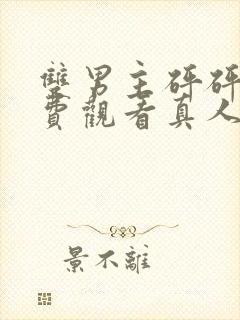 雙男主砰砰
費觀看真人
景不離